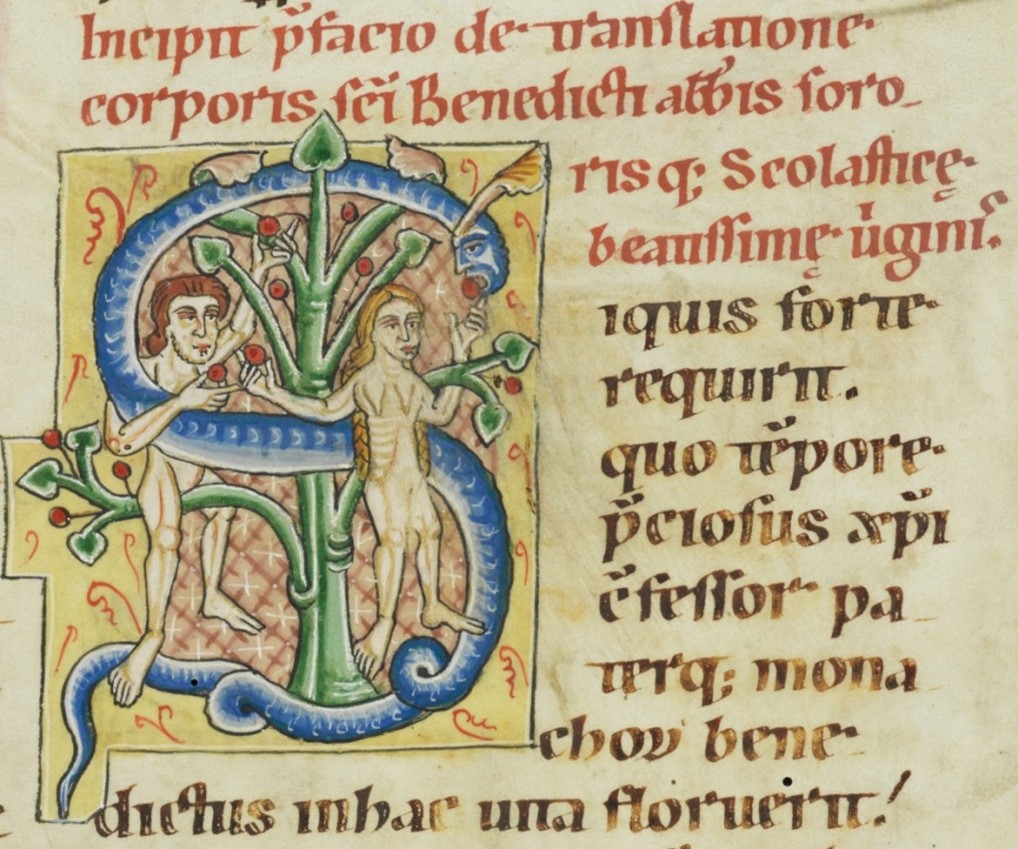 Incipit p̄facio de translatione
corporis sc̄i Benedicti abb̄is soro
risq; Scolasticę
beatissimę v̇gini꜄.
S iquis forte
requirit.
quo tēpore
p̄ciosus xp̄i
c̄fessor pa
terq; mona
choꝝ bene
dictus inhac uita floruerit!